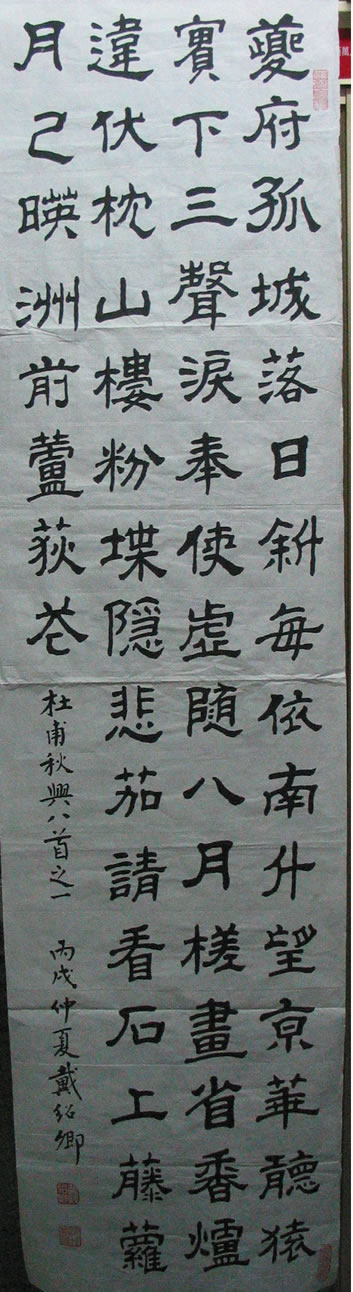 夔府孤城落日斜每依南斗望京華聽猿
實下三聲淚奉使虛隨八月槎畫省香爐
違伏枕山樓粉堞隱悲茄請看石上藤蘿
月已暎洲前蘆荻花
杜甫秋興八首之一 丙戌仲夏戴紹卿